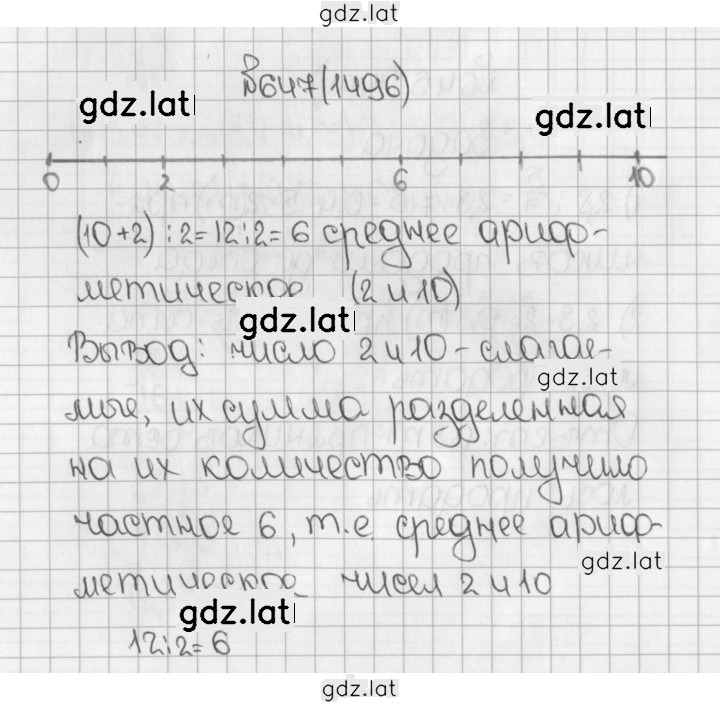 gdz.lat
№647(1496)
gdz.lat
gdz.lat
0 2 6 10
(10+2):2=12:2=6 среднее ариф-
метическое (2 и 10)
gdz.lat
Вывод: число 2 и 10-слагае-
gdz.lat
мые, их сумма разделенная
на их количество получило
частное 6, т.е среднее ариф-
gdz.lat
метическое чисел 2 и 10
gdz.lat
12:2=6
gdz.lat